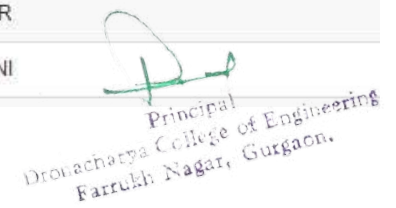 R
NI
Principal
Dronacharya College of Engineering
Farrukh Nagar, Gurgaon.